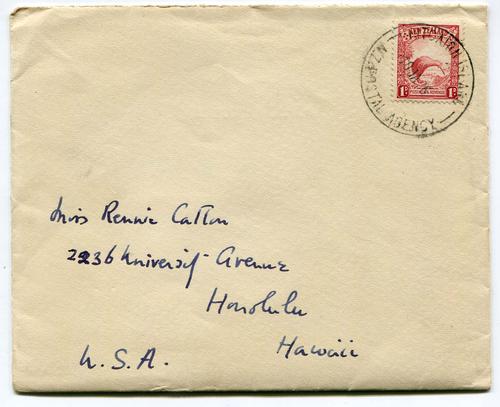 NEW ZEALAND
1D 1D
PITCAIRN ISLAND
N.Z. POSTAL AGENCY
Miss Rennie Catton
2236 University Avenue
Honolulu
Hawaii
U.S.A.